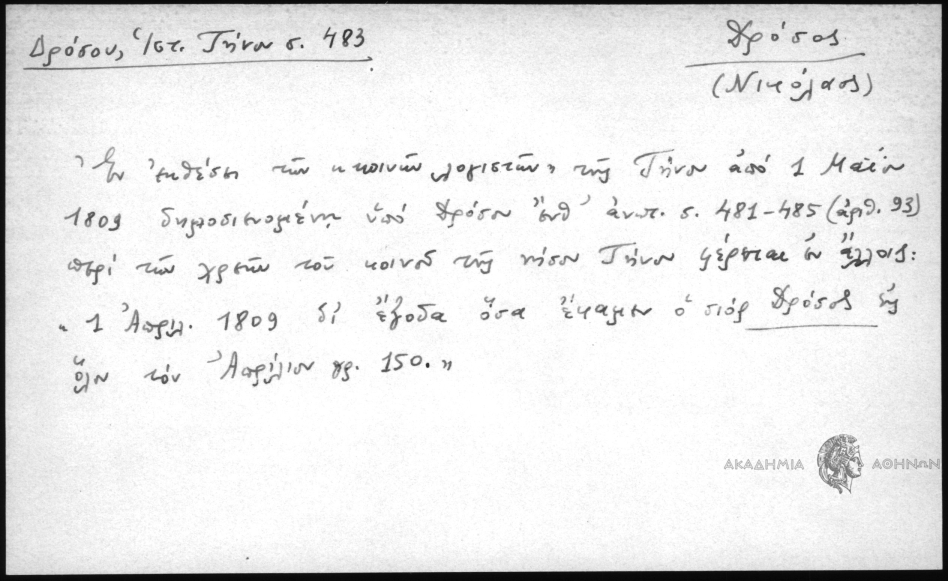 Δρόσου, Ἱστ. Τήνου σ. 483
Δρόσος
(Νικόλαος)
Ἐν ἐκθέσει τῶν «κοινῶν λογιστῶν» τῆς Τήνου ἀπό 1 Μαΐου
1809 δημοσιευομένῃ ὑπό Δρόσου ἔνθ' ἀνωτ. σ. 481-485 (ἀριθ. 93)
περί τῶν χρεῶν τοῦ κοινοῦ τῆς νήσου Τήνου φέρεται ἐν ἄλλοις:
« 1 Ἀπριλ. 1809 δι' ἔξοδα ὅσα ἔκαμεν ὁ σιόρ Δρόσος εἰς
ὅλον τόν Ἀπρίλιον γρ. 150.»
ΑΚΑΔΗΜΙΑ ΑΘΗΝΩΝ